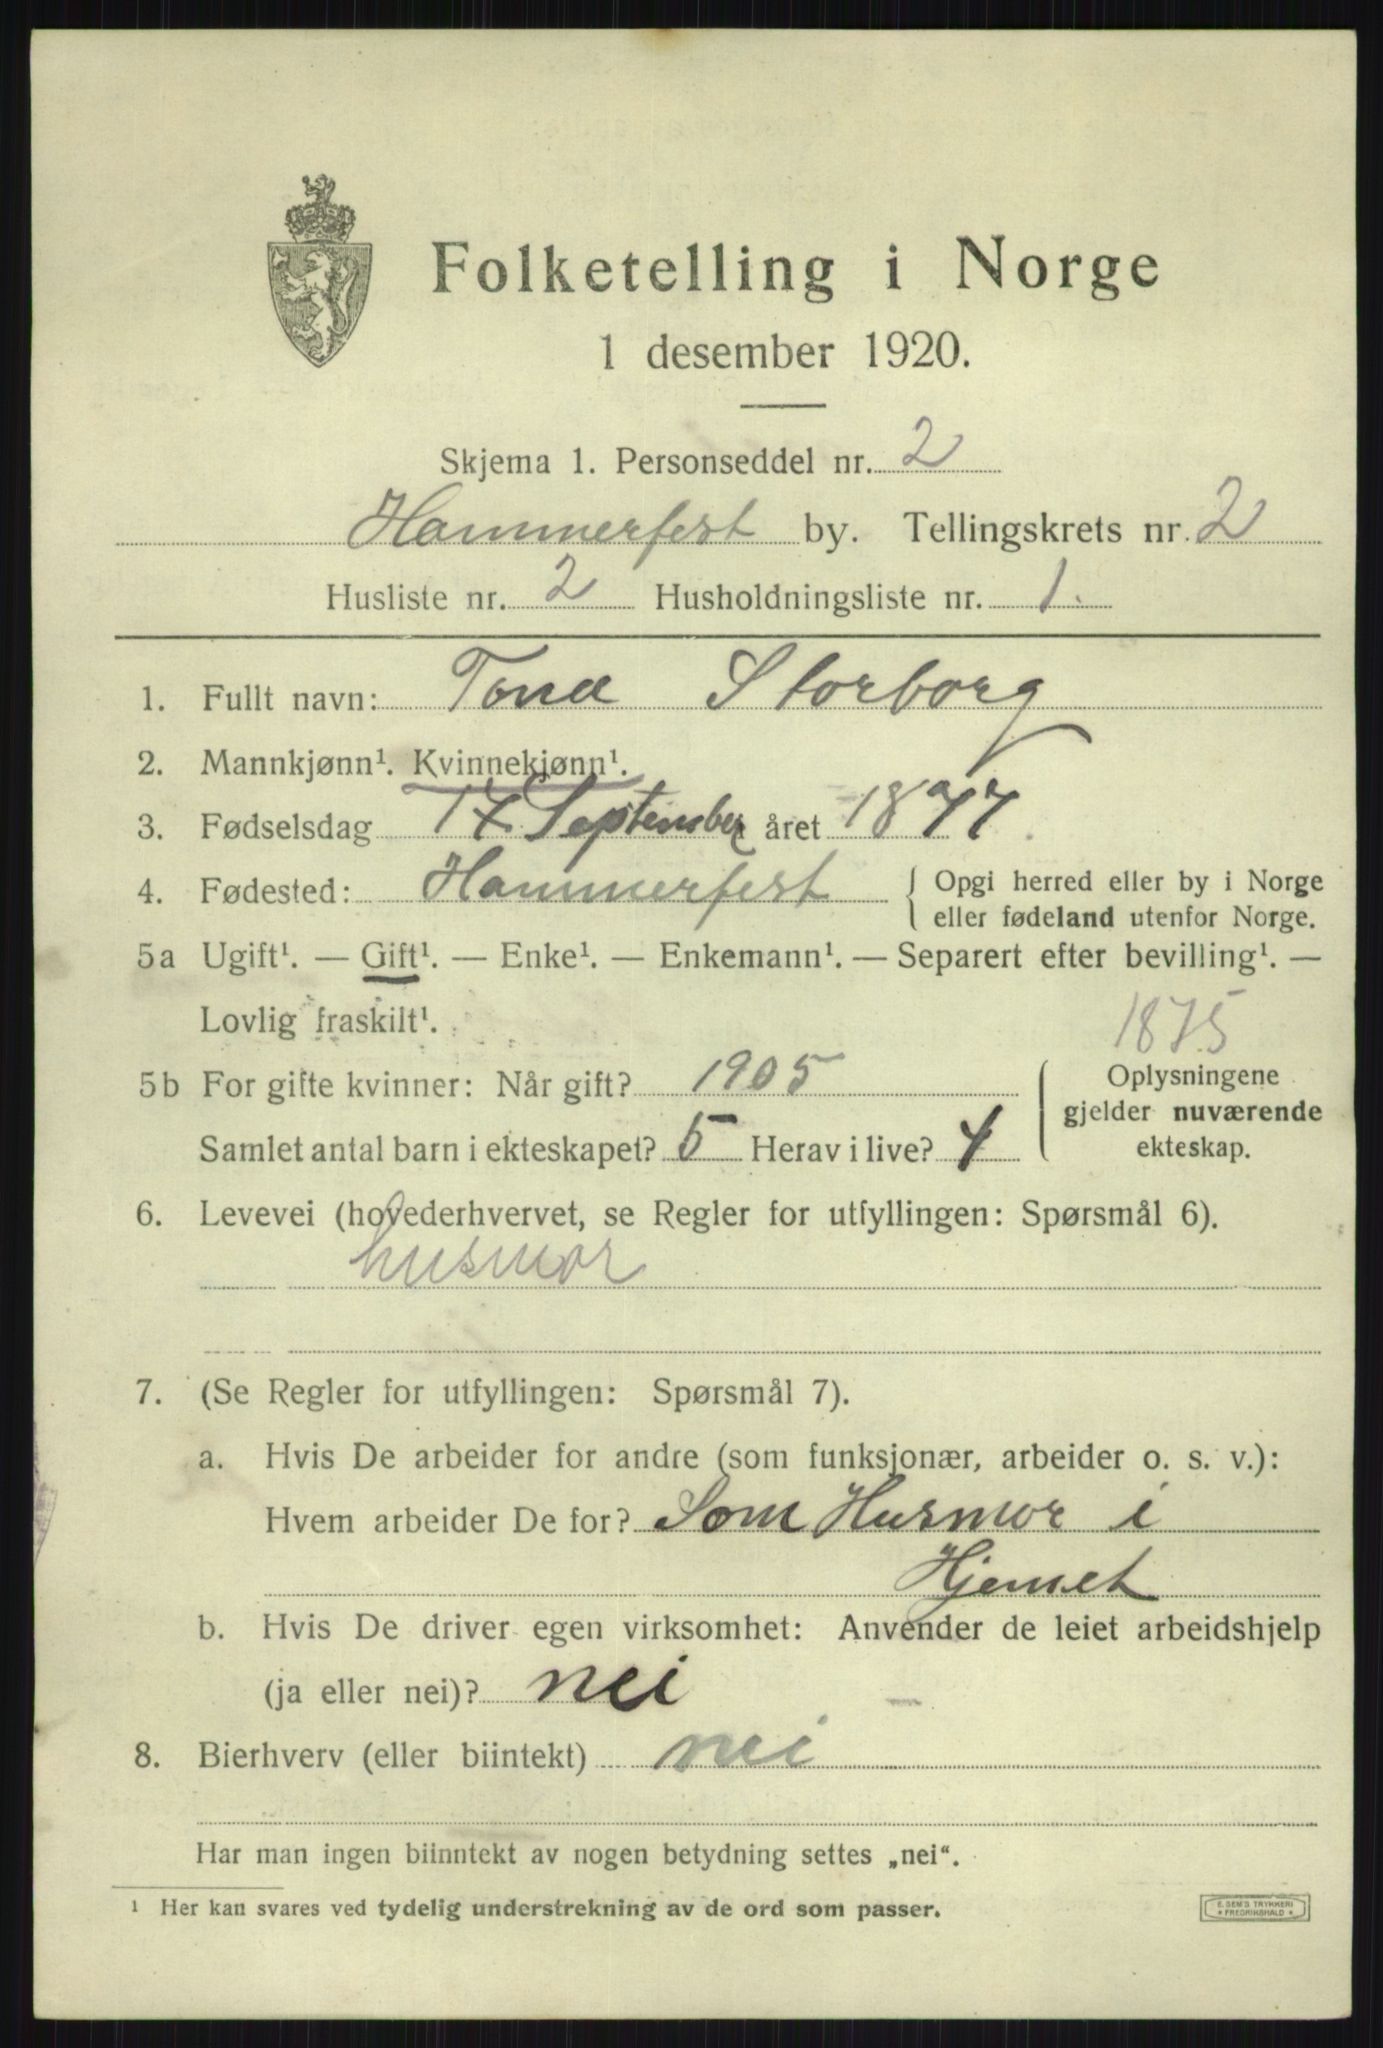 Folketelling i Norge
1 desember 1920.
Skjema 1. Personseddel nr. 2
Hammerfest by. Tellingskrets nr. 2
Husliste nr. 2 Husholdningsliste nr. 1.
1. Fullt navn: Tona Storborg
2. Mannkjønn¹. Kvinnekjønn¹.
3. Fødselsdag 17 September året 1877
4. Fødested: Hammerfest { Opgi herred eller by i Norge
eller fødeland utenfor Norge.
5a Ugift¹. — Gift¹. — Enke¹. — Enkemann¹. — Separert efter bevilling¹. —
Lovlig fraskilt¹.
1875
5b For gifte kvinner: Når gift? 1905
Samlet antal barn i ekteskapet? 5 Herav i live? 4
Oplysningene
gjelder nuværende
ekteskap.
6. Levevei (hovederhvervet, se Regler for utfyllingen: Spørsmål 6).
husmor
7. (Se Regler for utfyllingen: Spørsmål 7).
a. Hvis De arbeider for andre (som funksjonær, arbeider o. s. v.):
Hvem arbeider De for? Som Husmor i
Hjemet
b. Hvis De driver egen virksomhet: Anvender de leiet arbeidshjelp
(ja eller nei)? nei
8. Bierhverv (eller biintekt) nei
Har man ingen biinntekt av nogen betydning settes „nei“.
¹ Her kan svares ved tydelig understrekning av de ord som passer.
E. SEM'S TRYKKERI
* FREDRIKSHALD *